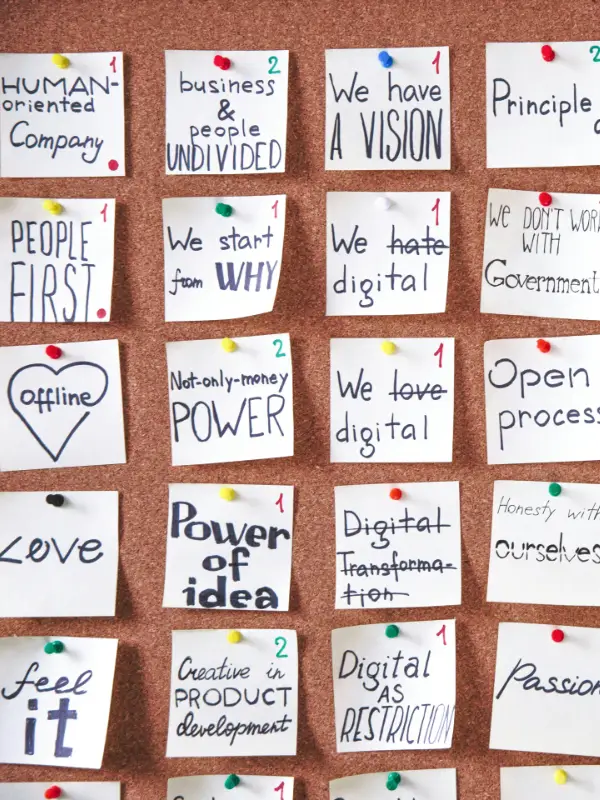 1
HUMAN-
oriented
Company
2
business
&
people
UNDIVIDED
1
We have
A VISION
2
Principle
1
PEOPLE
FIRST
1
We start
from WHY
1
We hate
digital
We DON'T WORK
WITH
Government
Offline
2
Not-only-money
POWER
1
We love
digital
Open
process
Love
1
Power
of
idea
Digital
Transforma-
tion
Honesty with
ourselves
feel
it
2
Creative in
PRODUCT
development
1
Digital
AS
RESTRICTION
Passion
1